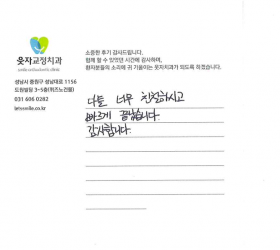 웃자교정치과
성남시 중원구 성남대로 1156
도원빌딩 3~5층(위즈노건물)
031 606 0282
소중한 후기 감사드립니다.
함께 할 수 있었던 시간에 감사하며,
환자분들의 소리에 귀 기울이는 웃자치과가 되도록 하겠습니다.
다들 너무 친절하시고
빠르게 끝났습니다.
감사합니다.